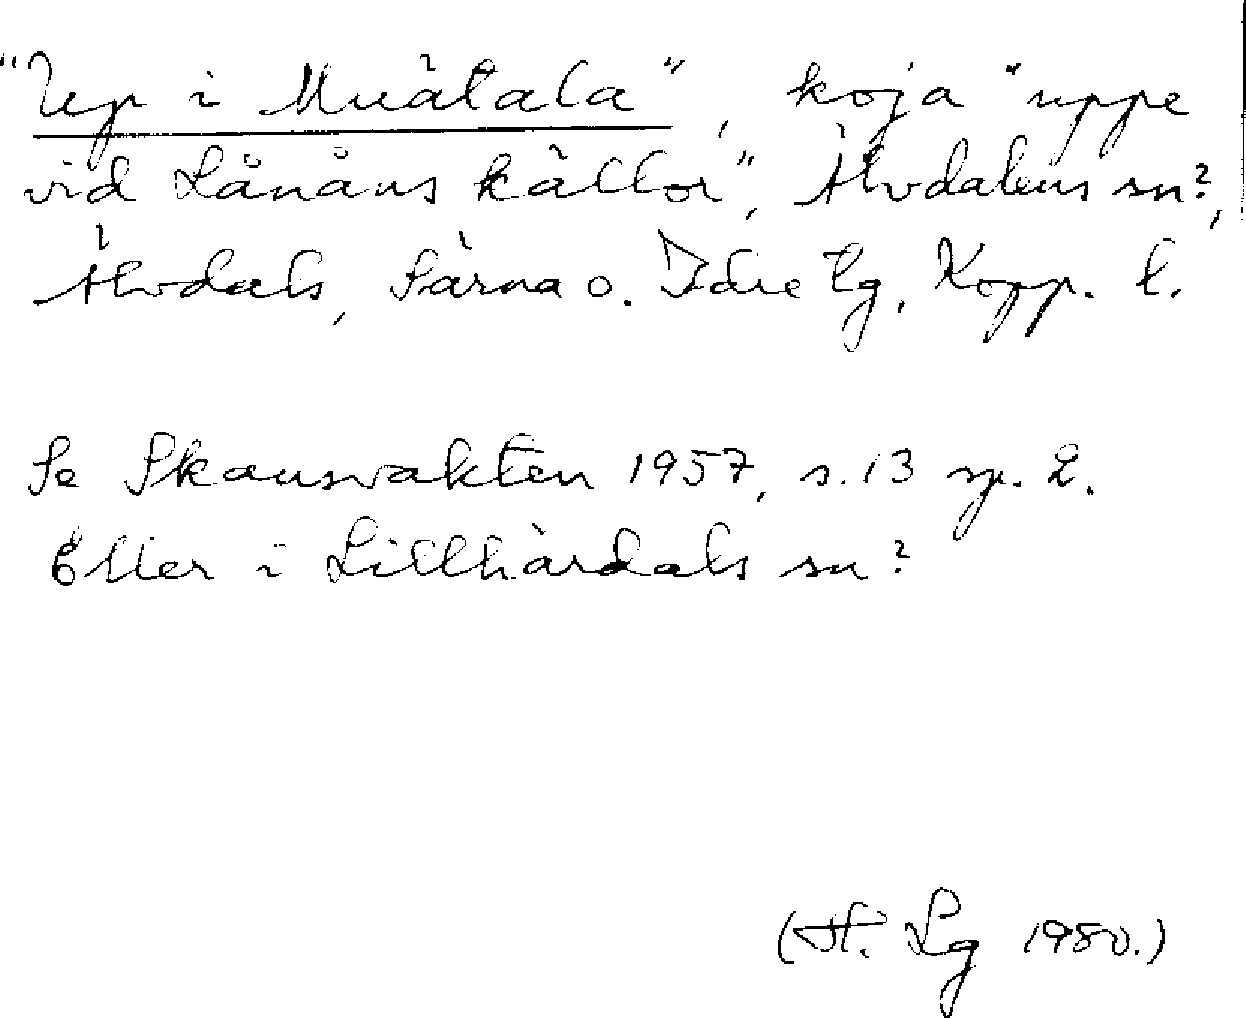 "Up i Muätala", koja "uppe
vid Lånåns källor", Älvdalens sn?,
Älvdals, Särna o. Idre tg, Kopp. l.
Se Skansvakten 1957, s. 13 sp. 2.
Eller i Lillhärdals sn?
(H. Lg 1980.)